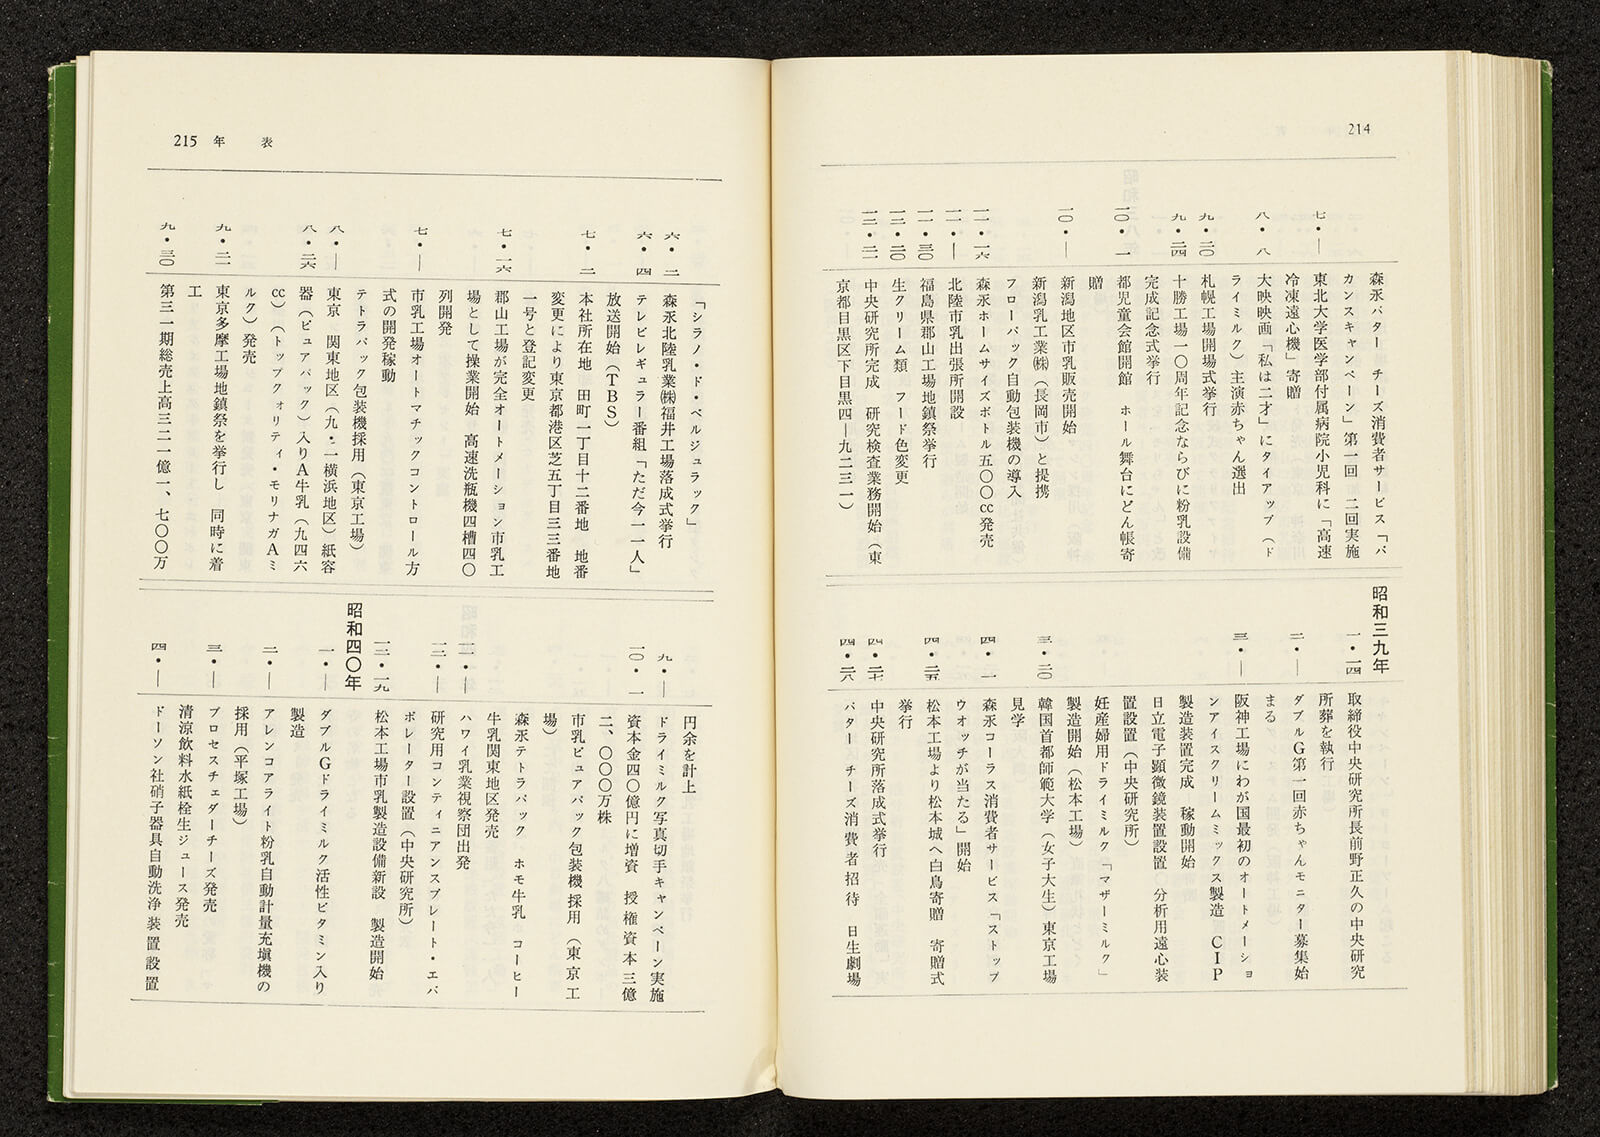 214
森永バター チーズ消費者サービス「バ
カンスキャンペーン」第一回 二回実施
七・― 東北大学医学部付属病院小児科に「高速
冷凍遠心機」寄贈
八・八 大映映画「私は二才」にタイアップ（ド
ライミルク）主演赤ちゃん選出
九・二〇 札幌工場開場式挙行
九・二四 十勝工場一〇周年記念ならびに粉乳設備
完成記念式挙行
一〇・一 都児童会館開館 ホール舞台にどん帳寄
贈
一〇・― 新潟地区市乳販売開始
新潟乳工業㈱（長岡市）と提携
フローパック自動包装機の導入
一一・一六 森永ホームサイズボトル五〇〇cc発売
一一・― 北陸市乳出張所開設
一一・三〇 福島県郡山工場地鎮祭挙行
一二・二〇 生クリーム類 フード色変更
一二・二一 中央研究所完成 研究検査業務開始（東
京都目黒区下目黒四―九二三一）
昭和三九年
一・一四 取締役中央研究所長前野正久の中央研究
所葬を執行
二・― ダブルG第一回赤ちゃんモニター募集始
まる
三・― 阪神工場にわが国最初のオートメーショ
ンアイスクリームミックス製造 CIP
製造装置完成 稼動開始
日立電子顕微鏡装置設置 分析用遠心装
置設置（中央研究所）
妊産婦用ドライミルク「マザーミルク」
製造開始（松本工場）
三・二〇 韓国首都師範大学（女子大生）東京工場
見学
四・一 森永コーラス消費者サービス「ストップ
ウオッチが当たる」開始
四・二五 松本工場より松本城へ白鳥寄贈 寄贈式
挙行
四・二七 中央研究所落成式挙行
四・二八 バター チーズ消費者招待 日生劇場
215 年 表
「シラノ・ド・ベルジュラック」
六・二 森永北陸乳業㈱福井工場落成式挙行
六・四 テレビレギュラー番組「ただ今一一人」
放送開始（TBS）
七・二 本社所在地 田町一丁目十二番地 地番
変更により東京都港区芝五丁目三三番地
一号と登記変更
七・一六 郡山工場が完全オートメーション市乳工
場として操業開始 高速洗瓶機四槽四〇
列開発
七・― 市乳工場オートマチックコントロール方
式の開発稼動
テトラパック包装機採用（東京工場）
八・― 東京 関東地区（九・一横浜地区）紙容
八・二六 器（ピュアパック）入りA牛乳（九四六
cc）（トップクォリティ・モリナガAミ
ルク）発売
九・二一 東京多摩工場地鎮祭を挙行し 同時に着
工
九・三〇 第三一期総売上高三二一億一、七〇〇万
円余を計上
九・― ドライミルク写真切手キャンペーン実施
一〇・一 資本金四〇億円に増資 授権資本三億
二、〇〇〇万株
市乳ピュアパック包装機採用（東京工
場）
森永テトラパック ホモ牛乳 コーヒー
牛乳関東地区発売
一一・― ハワイ乳業視察団出発
一二・― 研究用コンティニアンスプレート・エバ
ポレーター設置（中央研究所）
一二・一九 松本工場市乳製造設備新設 製造開始
昭和四〇年
一・― ダブルGドライミルク活性ビタミン入り
製造
二・― アレンコアライト粉乳自動計量充塡機の
採用（平塚工場）
三・― プロセスチェダーチーズ発売
清涼飲料水紙栓生ジュース発売
四・― ドーソン社硝子器具自動洗浄装置設置